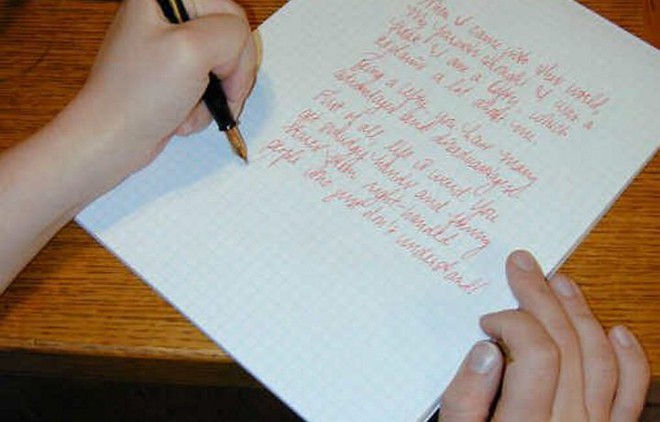 When I came into this world,
my parents already I was a
I am a lefty, which
explains a lot about me.
Being a lefty, you have many
advantages and disadvantages.
First of all, life around you
and funny
right handed
people just don't understand!